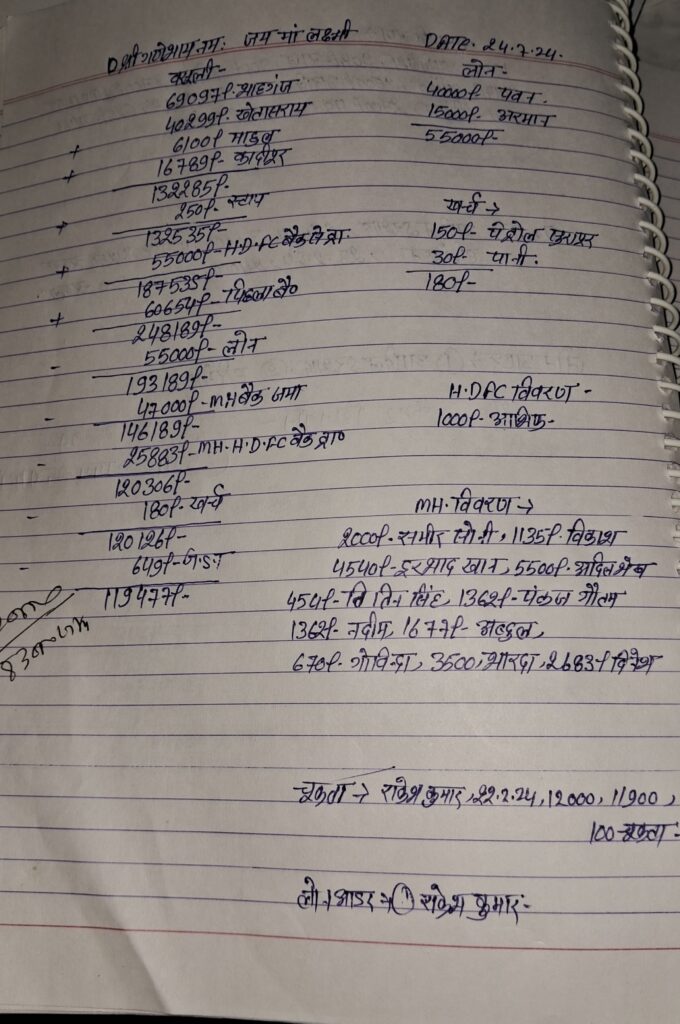 श्री गणेशाय नमः जय मां लक्ष्मी DATE. 24.7.24.
वसूली-
69097/- शाहगंज
40299/- खेतासराय
+ 6100/- माडल
+ 16789/- कादीपुर
132285/-
250/- स्टाप
+ 132535/-
+ 55000/- H.D.FC बैंक
187535/-
+ 60654/- पिछला बै०
248189/-
- 55000/- लोन
193189/-
- 47000/- MH बैंक जमा
146189/-
- 25883/- MH. H.D.FC बैंक ट्रा०
120306/-
- 180/- खर्च
120126/-
- 649/-
119477/-
लोन-
40000/- पवन.
15000/- अरमान
55000/-
खर्च →
150/- पेट्रोल
30/- पानी.
180/-
H.DFC विवरण -
1000/- आशिफ-
MH. विवरण →
2000/- समीर सोनी, 1135/- विकाश
4540/- इरशाद खान, 5500/-
454/- सिंह, 1362/- पंकज गौतम
1362/- नदीम, 1677/- अब्दुल,
670/- गोविन्दा, 3500, शारदा, 2683/- दिनेश
चुकता → राकेश कुमार, 22.2.24, 12000, 11900,
100 चुकता -
→ ① राकेश कुमार -